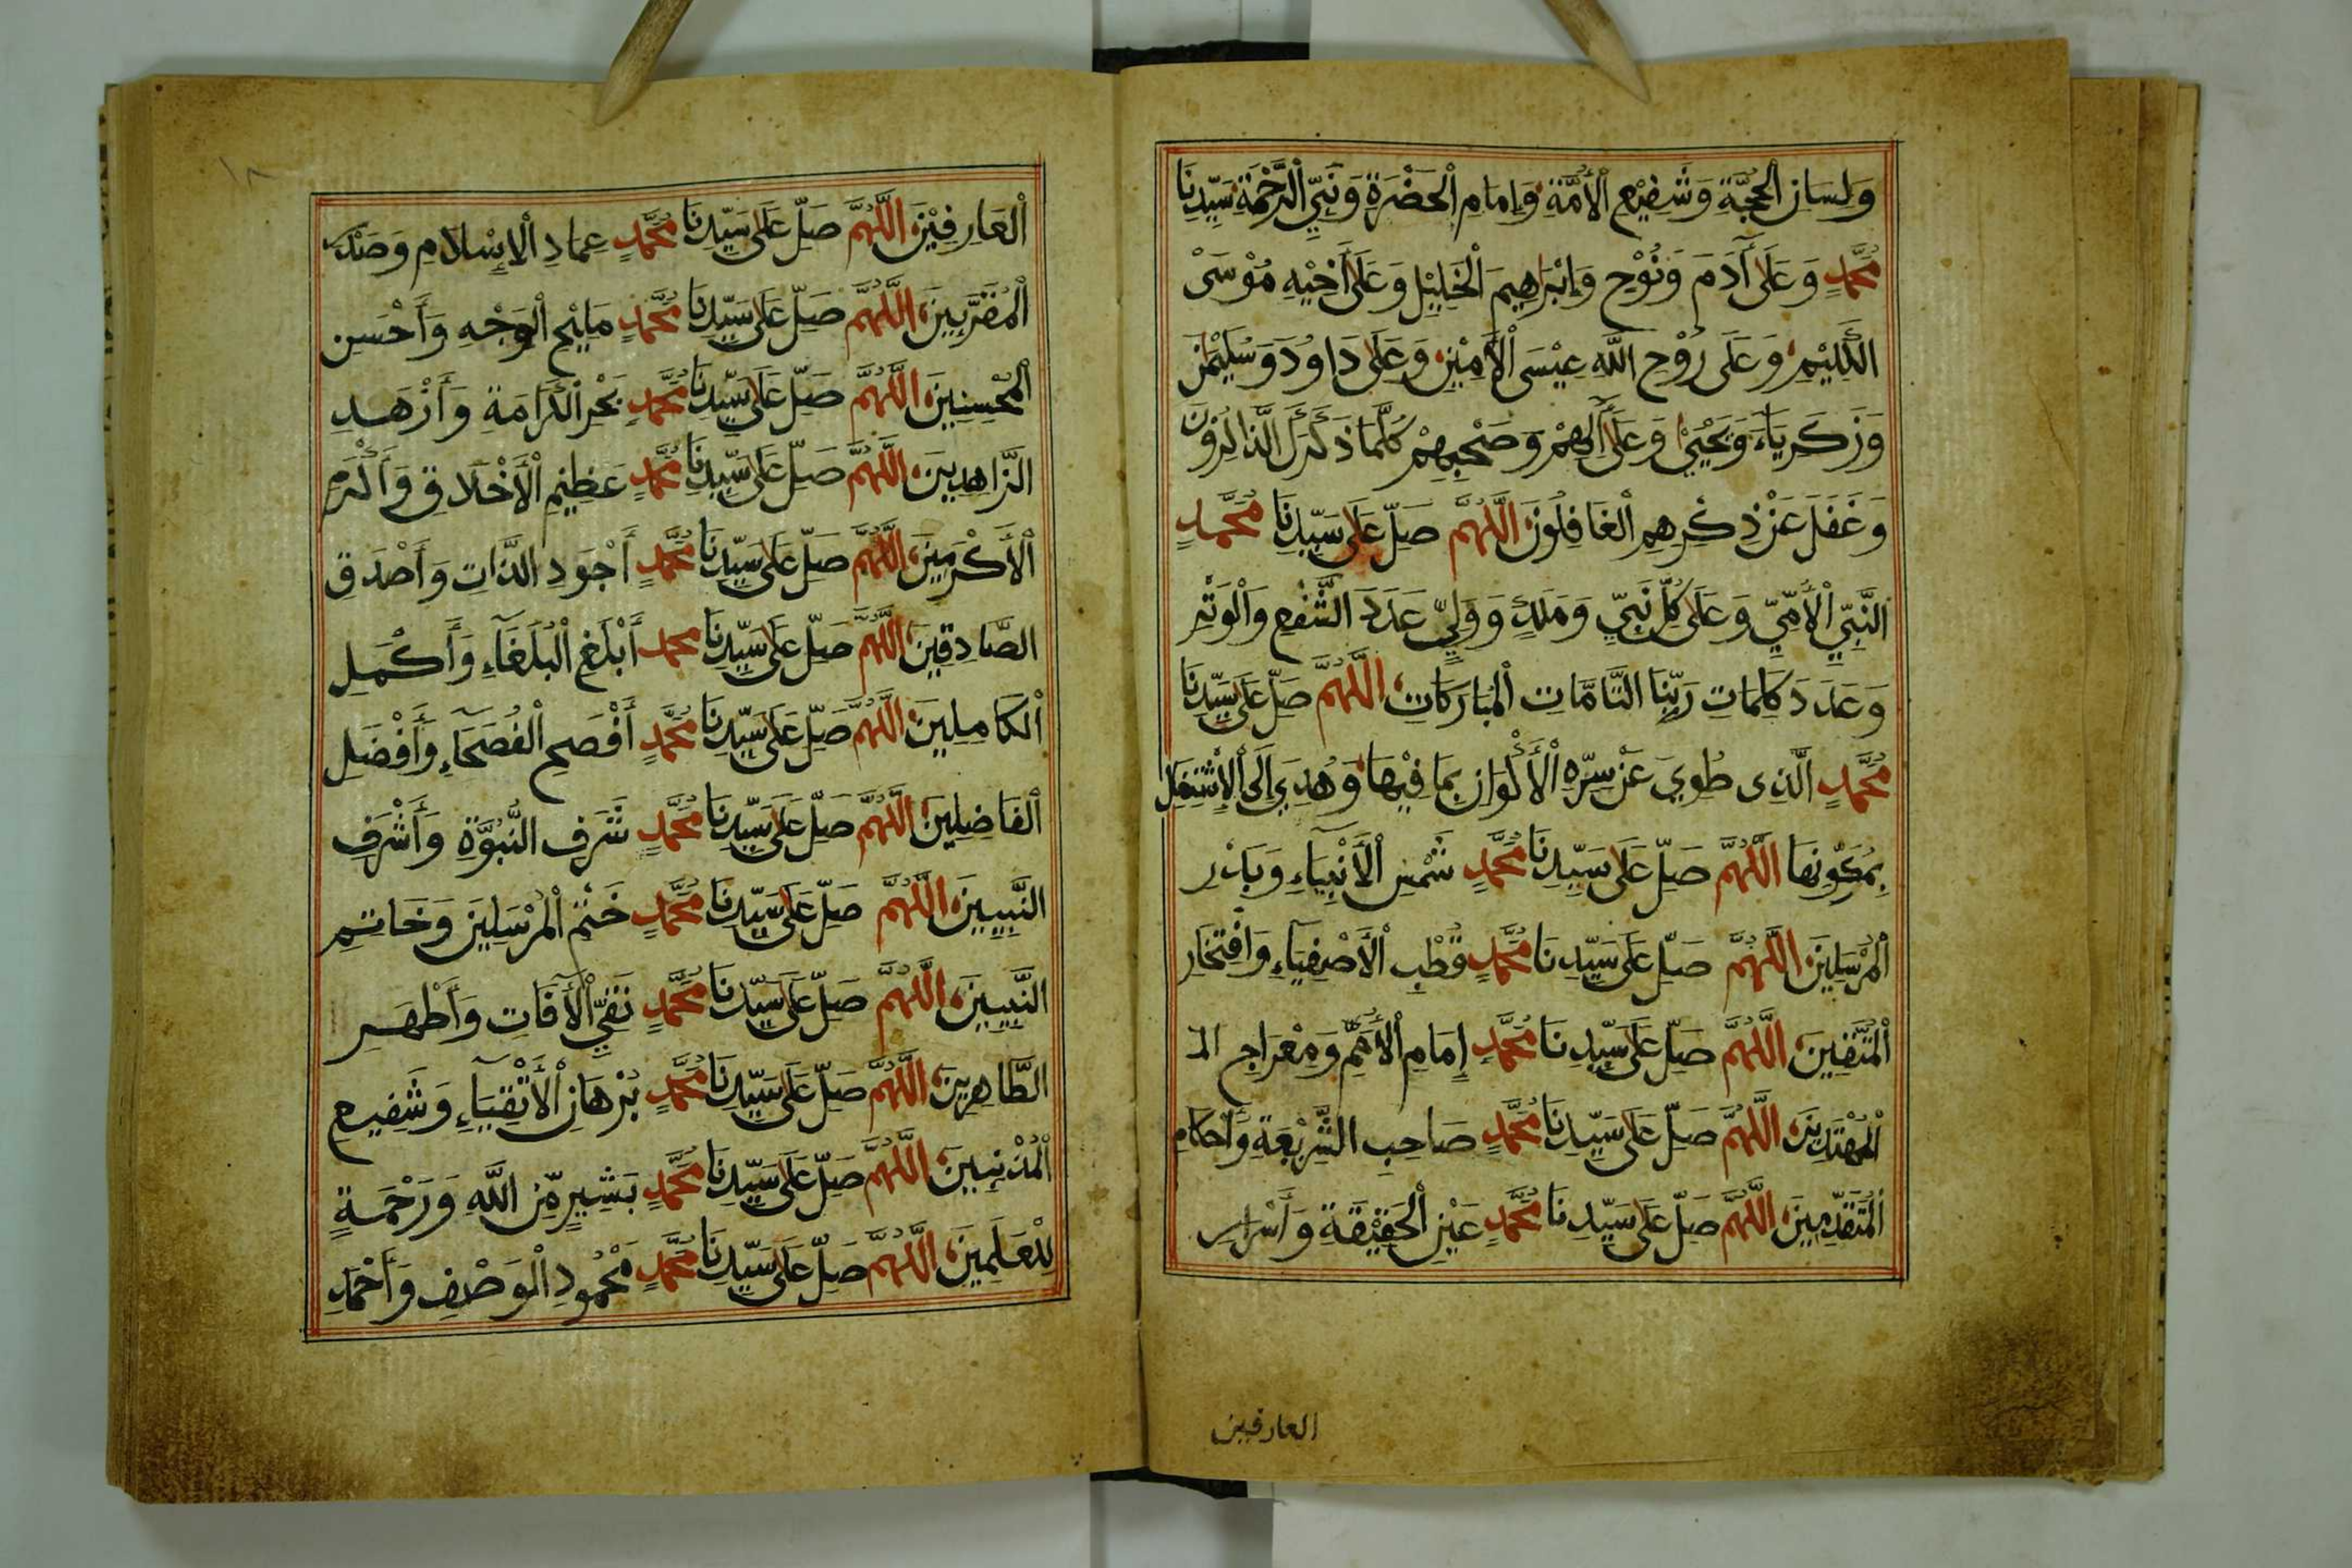 وَلِسَانِ الْحُجَّةِ وَشَفِيْعِ الْأُمَّةِ وَإِمَامِ الْحَضْرَةِ وَنَبِيِّ الرَّحْمَةِ سَيِّدِنَا
مُحَمَّدٍ وَعَلَى آدَمَ وَنُوْحٍ وَإِبْرَاهِيمَ الْخَلِيْلِ وَعَلَى أَخِيْهِ مُوْسَىْ
الْكَلِيْمِ وَعَلَى رُوْحِ اللَّهِ عِيْسَى الْأَمِيْنِ وَعَلَى دَاوُدَ وَسُلَيْمٰنَ
وَزَكَرِيَاءَ وَيَحْيَىْ وَعَلَى آلِهِمْ وَصَحْبِهِمْ كُلَّمَا ذَكَرَكَ الذَّاكِرُوْنَ
وَغَفَلَ عَنْ ذِكْرِهِمِ الْغَافِلُوْنَ اللَّهُمَّ صَلِّ عَلَى سَيِّدِنَا مُحَمَّدٍ
النَّبِيِّ الْأُمِّيِّ وَعَلَى كُلِّ نَبِيٍّ وَمَلَكٍ وَوَلِيٍّ عَدَدَ الشَّفْعِ وَالْوَتْرِ
وَعَدَدَ كَلِمَاتِ رَبِّنَا التَّامَّاتِ الْمُبَارَكَاتِ اللَّهُمَّ صَلِّ عَلَى سَيِّدِنَا
مُحَمَّدٍ الَّذِى طُوِيَ عَنْ سِرِّهِ الْأَكْوَانِ بِمَا فِيْهَا وَهُدِيَ إِلَى
بِمُكَوِّنِهَا اللَّهُمَّ صَلِّ عَلَى سَيِّدِنَا مُحَمَّدٍ شَمْسِ الْأَنْبِيَاءِ وَبَدْرِ
الْمُرْسَلِيْنَ اللَّهُمَّ صَلِّ عَلَى سَيِّدِنَا مُحَمَّدٍ قُطْبِ الْأَصْفِيَاءِ وَافْتِخَارِ
الْمُتَّقِينَ اللَّهُمَّ صَلِّ عَلَى سَيِّدِنَا مُحَمَّدٍ إِمَامِ الْأُمَمِ وَمِعْرَاجِ
الْمُهْتَدِيْنَ اللَّهُمَّ صَلِّ عَلَى سَيِّدِنَا مُحَمَّدٍ صَاحِبِ الشَّرِيْعَةِ وَأَحْكَامِ
الْمُتَقَدِّمِيْنَ اللَّهُمَّ صَلِّ عَلَى سَيِّدِنَا مُحَمَّدٍ عَيْنِ الْحَقِيْقَةِ وَأَسْرَارِ
العارفين
١٨
الْعَارِفِيْنَ اللَّهُمَّ صَلِّ عَلَى سَيِّدِنَا مُحَمَّدٍ عِمَادِ الْإِسْلَامِ وَصَدْرِ
الْمُقَرَّبِينَ اللَّهُمَّ صَلِّ عَلَى سَيِّدِنَا مُحَمَّدٍ مَلِيْحِ الْوَجْهِ وَأَحْسَنِ
الْمُحْسِنِينَ اللَّهُمَّ صَلِّ عَلَى سَيِّدِنَا مُحَمَّدٍ بَحْرِ الْكَرَامَةِ وَأَزْهَدِ
الزَّاهِدِينَ اللَّهُمَّ صَلِّ عَلَى سَيِّدِنَا مُحَمَّدٍ عَظِيْمِ الْأَخْلَاقِ وَأَكْرَمِ
الْأَكْرَمِينَ اللَّهُمَّ صَلِّ عَلَى سَيِّدِنَا مُحَمَّدٍ أَجْوَدِ الذَّاتِ وَأَصْدَقِ
الصَّادِقِينَ اللَّهُمَّ صَلِّ عَلَى سَيِّدِنَا محمد أَبْلَغِ الْبُلَغَآءِ وَأَكْمَلِ
الْكَامِلِينَ اللَّهُمَّ صَلِّ عَلَى سَيِّدِنَا مُحَمَّدٍ أَفْصَحِ الْفُصَحَآءِ وَأَفْضَلِ
الْفَاضِلِينَ اللَّهُمَّ صَلِّ عَلَى سَيِّدِنَا مُحَمَّدٍ شَرَفِ النُّبُوَّةِ وَأَشْرَفِ
النَّبِيِينَ اللَّهُمَّ صَلِّ عَلَى سَيِّدِنَا مُحَمَّدٍ خَتْمِ الْمُرْسَلِيْنَ وَخَاتِمِ
النَّبِيِينَ اللَّهُمَّ صَلِّ عَلَى سَيِّدِنَا مُحَمَّدٍ نَقِيِّ الْآفَاتِ وَأَطْهَرِ
الطَّاهِرِينَ اللَّهُمَّ صَلِّ عَلَى سَيِّدِنَا مُحَمَّدٍ بُرْهَانِ الْأَتْقِيَآءِ وَشَفِيعِ
الْمُذْنِبِينَ اللَّهُمَّ صَلِّ عَلَى سَيِّدِنَا مُحَمَّدٍ بَشِيرٍ مِّنَ اللَّهِ وَرَحْمَةٍ
لِلْعَالَمِينَ اللَّهُمَّ صَلِّ عَلَى سَيِّدِنَا مُحَمَّدٍ مَحْمُودِ الْوَصْفِ وَأَحْمَدِ